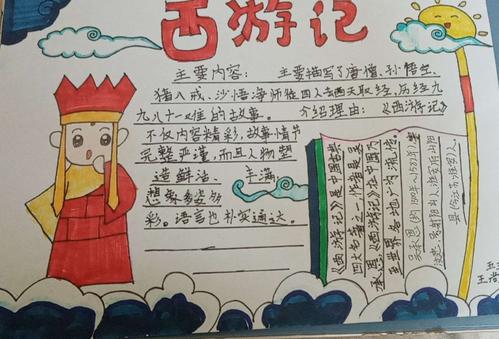 西游记
主要内容：主要描写了唐僧、孙悟空、
猪八戒、沙悟净师徒四人去西天取经，历经九
九八十一难的故事。 介绍理由：《西游记》
不仅内容精彩，故事情节
完整严谨，而且人物塑
造鲜活、丰满，
想象多姿多
彩。语言也朴实通达。
《西游记》是中国古典
四大名著之一，作者是吴
承恩，《西游记》在中国乃
至世界各地广为流传